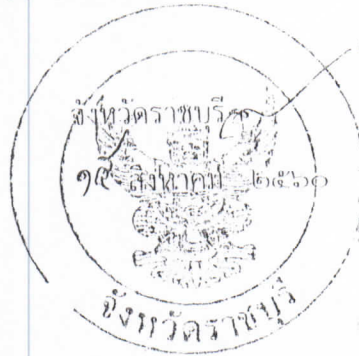 จังหวัดราชบุรี
สิงหาคม ๒๕๖๐
จังหวัดราชบุรี